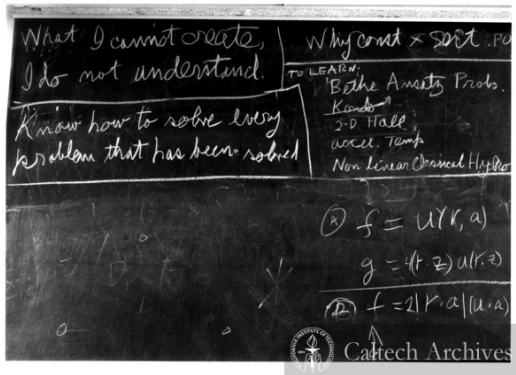 What I cannot create,
I do not understand.
Know how to solve every
problem that has been solved
Why const × sort . PO
TO LEARN:
Bethe Ansatz Probs.
Kondo
2-D Hall
accel. Temp
Non Linear Classical Hydro
Ⓐ f = u(r, a)
g = 4(r·z) u(r, z)
f = 2|r·a|(u·a)
Caltech Archives